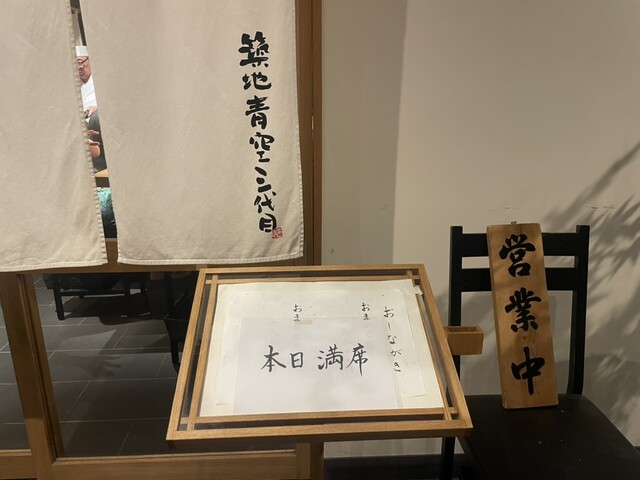 築地青空三代目
おしながき
おま
おま
本日満席
営業中